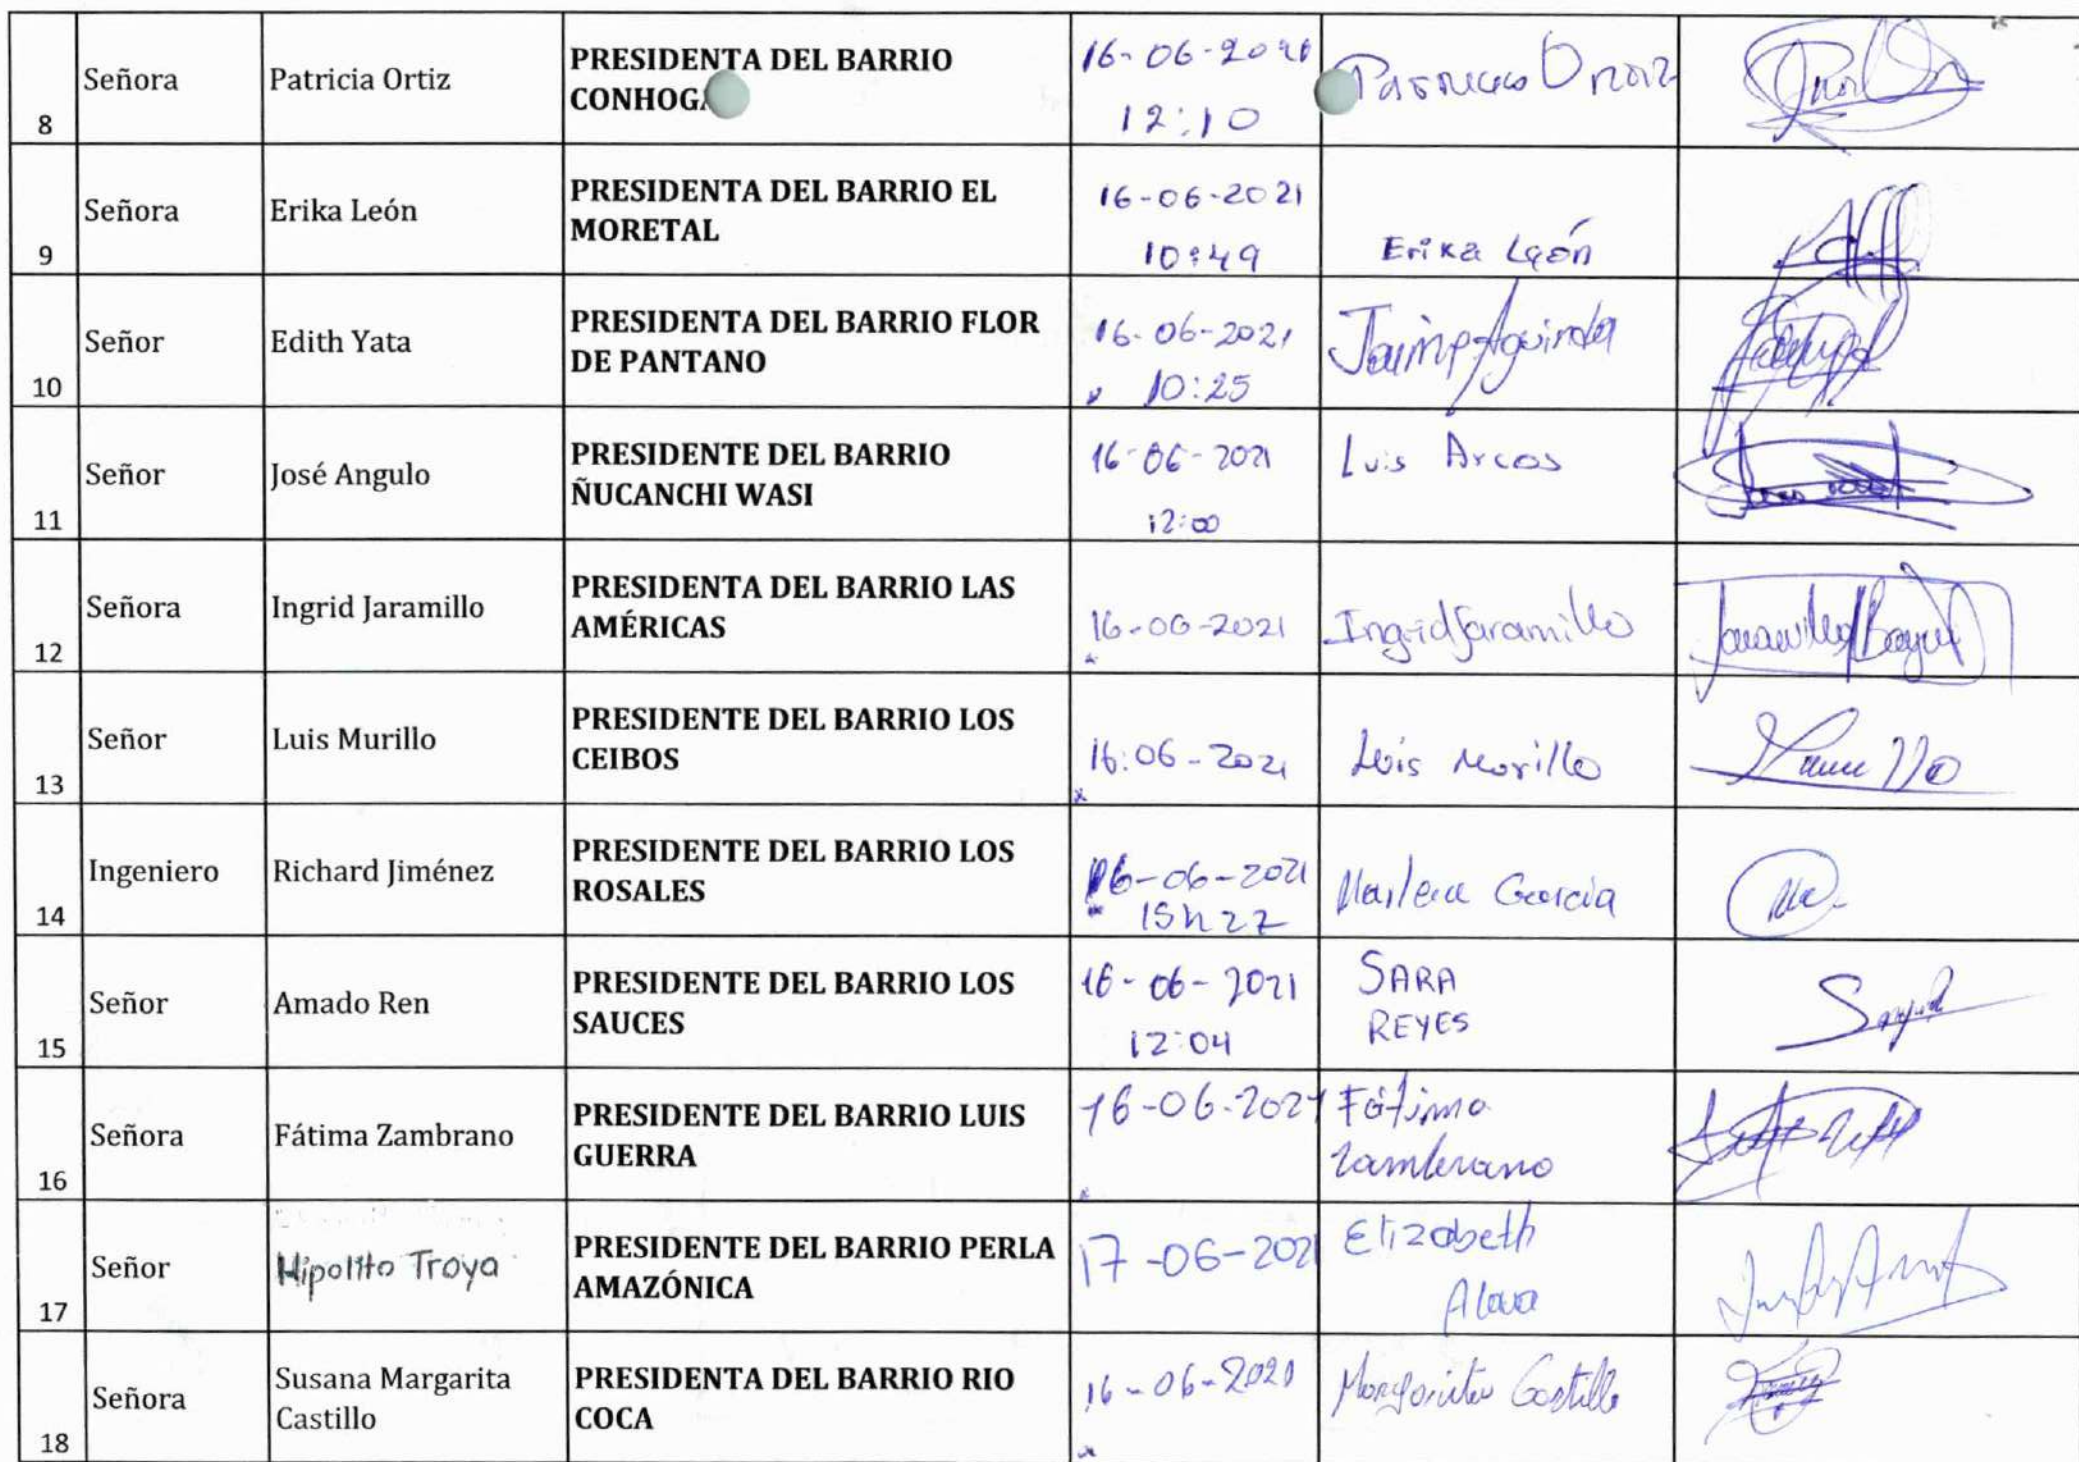 8 Señora Patricia Ortiz PRESIDENTA DEL BARRIO
CONHOGA
16-06-2021
12:10
Patricia Ortiz
9 Señora Erika León PRESIDENTA DEL BARRIO EL
MORETAL
16-06-2021
10:49
Erika León
10 Señor Edith Yata PRESIDENTA DEL BARRIO FLOR
DE PANTANO
16-06-2021
10:25
Jaime Aguinda
11 Señor José Angulo PRESIDENTE DEL BARRIO
ÑUCANCHI WASI
16-06-2021
12:00
Luis Arcos
12 Señora Ingrid Jaramillo PRESIDENTA DEL BARRIO LAS
AMÉRICAS
16-06-2021
Ingrid Jaramillo
13 Señor Luis Murillo PRESIDENTE DEL BARRIO LOS
CEIBOS
16:06-2021
Luis Murillo
14 Ingeniero Richard Jiménez PRESIDENTE DEL BARRIO LOS
ROSALES
16-06-2021
15h27
García
15 Señor Amado Ren PRESIDENTE DEL BARRIO LOS
SAUCES
16-06-2021
12:04
SARA
REYES
16 Señora Fátima Zambrano PRESIDENTE DEL BARRIO LUIS
GUERRA
16-06-2021
Fátima
Zambrano
17 Señor Hipolito Troya PRESIDENTE DEL BARRIO PERLA
AMAZÓNICA
17-06-2021
Elizabeth
Alava
18 Señora Susana Margarita
Castillo
PRESIDENTA DEL BARRIO RIO
COCA
16-06-2021
Margarita Castillo